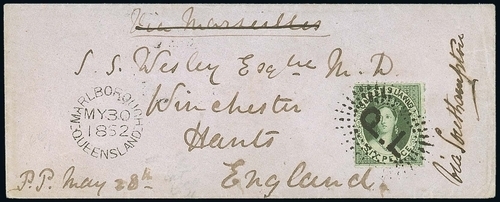 Via Marseilles
S. S. Wesley Esqre M. D
Winchester
Hants
England.
Via Southampton
P.P. May 28th
MARLBOROUGH
MY 30
1862
QUEENSLAND
P.L
SIX PENCE